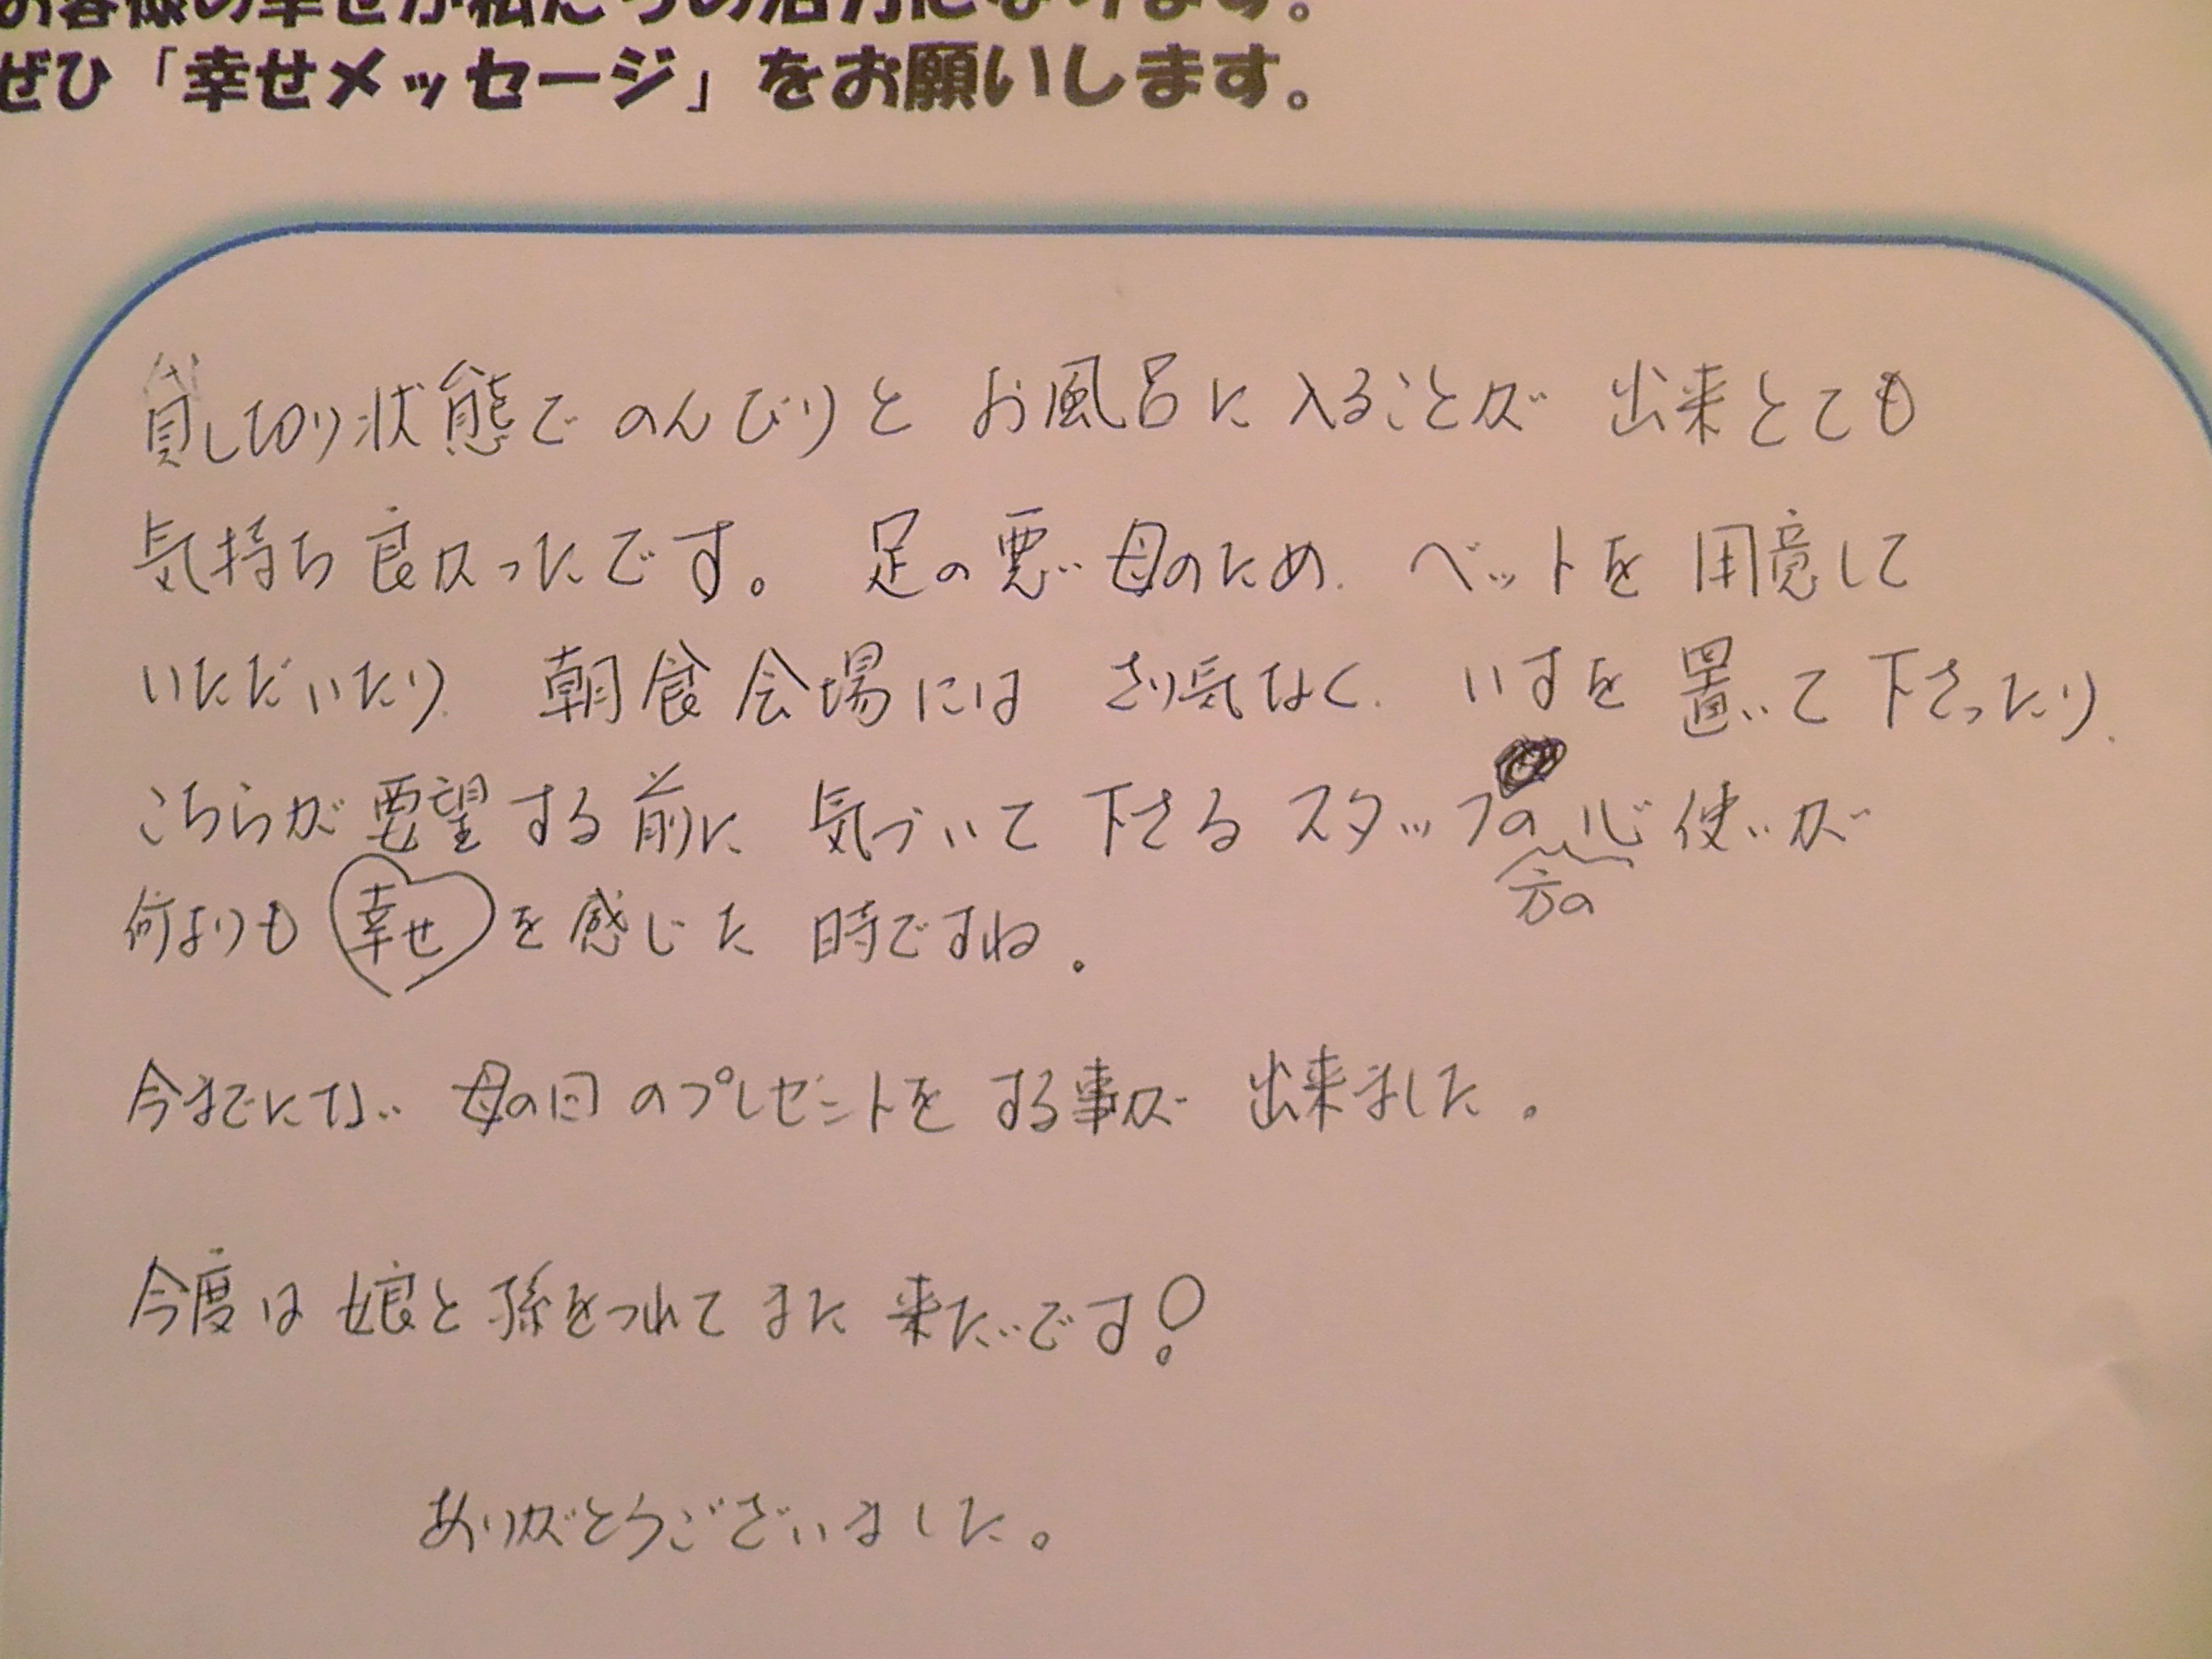 お客様の幸せが私たちの活力になります。
ぜひ「幸せメッセージ」をお願いします。
貸し切り状態で のんびりと お風呂に 入ることが 出来とても
気持ち良かったです。 足の悪い母のため、ベットを用意して
いただいたり、朝食会場には さり気なく、いすを置いて下さったり、
こちらが要望する前に 気づいて下さるスタッフの心使いが
方の
何よりも 幸せ を感じた 時ですね。
今までにない 母の日のプレゼントを する事が 出来ました。
今度は 娘と孫をつれて また 来たいです!
ありがとうございました。